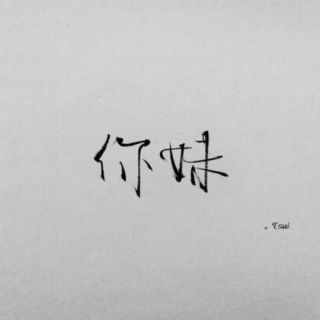 你妹
. Esui